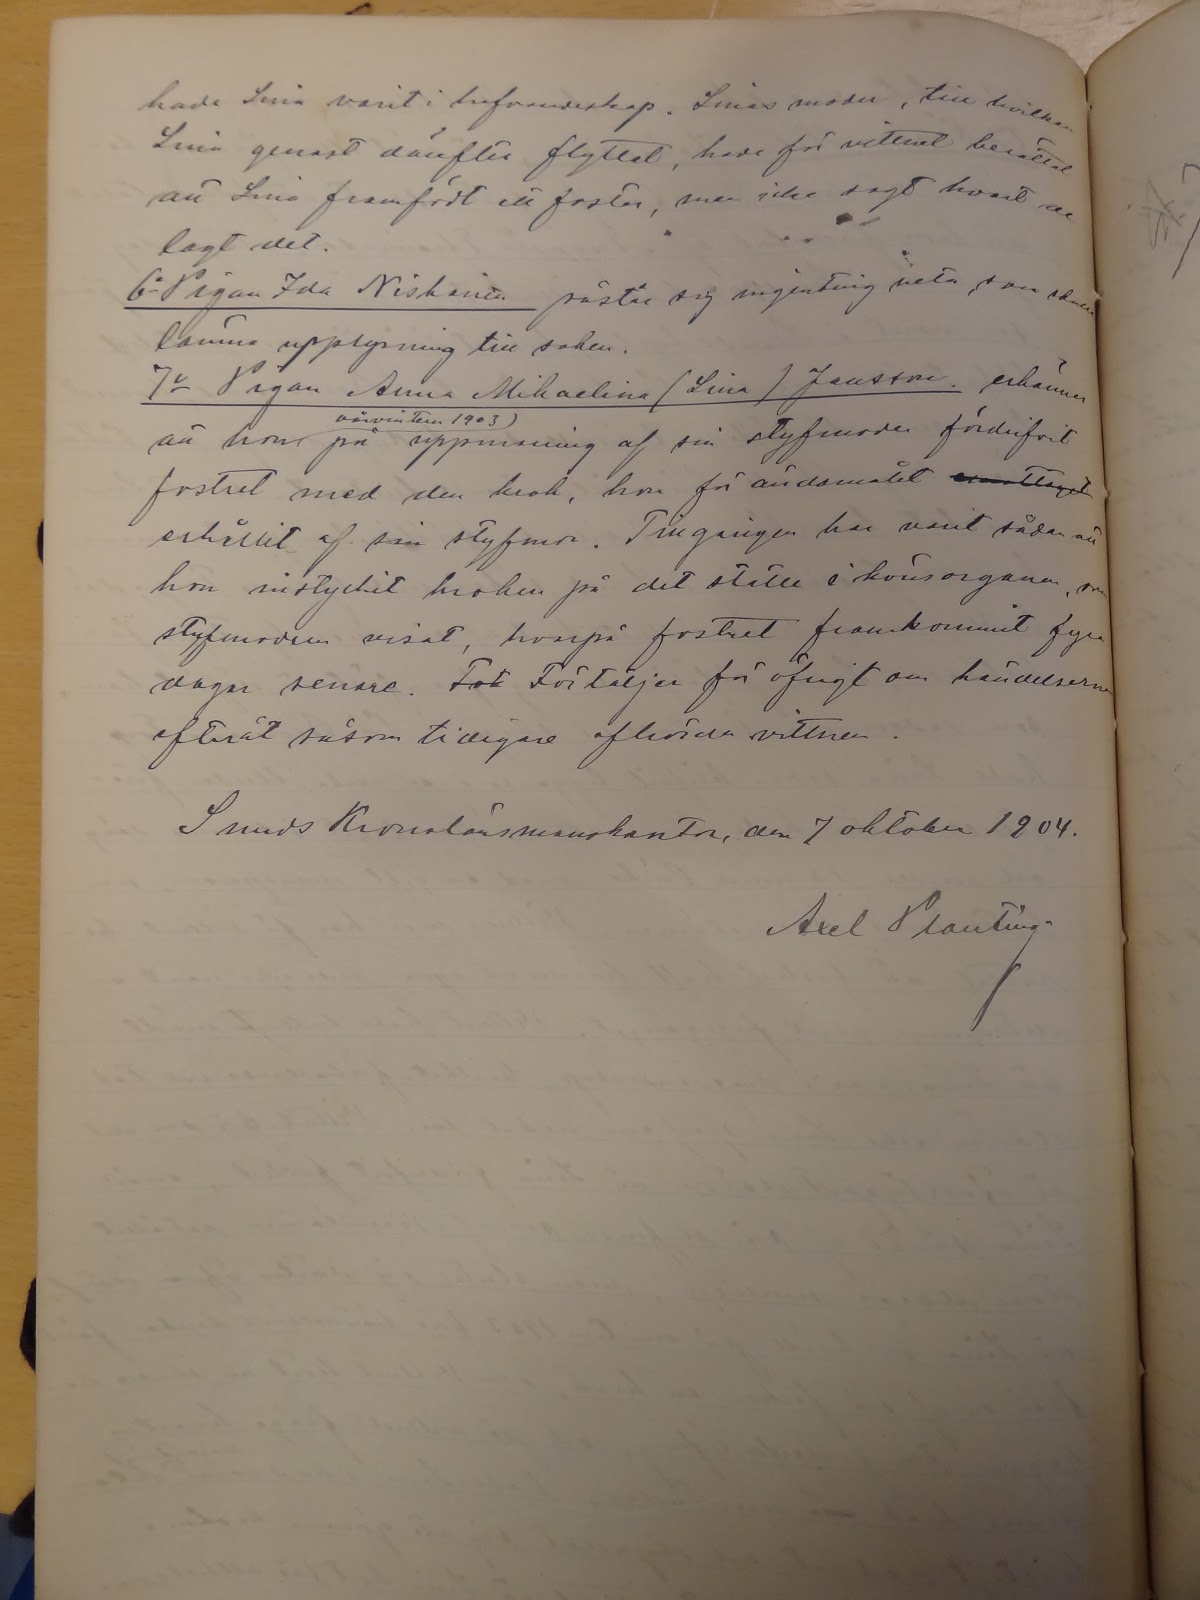 hade Lina varit i hafvandeskap. Linas moder, till hvilken
Lina genast därefter flyttat, hade för vittnet berättat
att Lina framfödt ett foster, men icke sagt hvart de
lagt det.
6o Pigan Ida Niskanen påstår sig ingenting veta, som skulle
lämna upplysning till saken.
7o Pigan Anna Mikaelina (Lina) Jansson. erkänner
vårvintern 1903)
att hon på uppmaning af sin styfmoder fördrifvit
fostret med den krok, hon för ändamålet emottagit
erhållit af sin styfmor. Tillgången har varit sådan att
hon instuckit kroken på det ställe i könsorganen, som
styfmodern visat, hvarpå fostret framkommit fyra
dagar senare. Förtäljer för öfrigt om händelserna
efteråt såsom tidigare afhörda vittnen.
Snuds Kronolänsmanskontor, den 7 oktober 1904.
Axel Planting